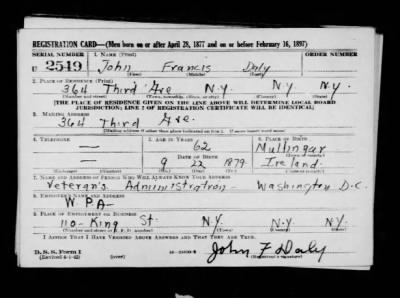 REGISTRATION CARD—(Men born on or after April 28, 1877 and on or before February 16, 1897)
SERIAL NUMBER 1. NAME (Print)
U 2549 John Francis Daly
(First) (Middle) (Last)
2. PLACE OF RESIDENCE (Print)
364 Third Ave N.Y. N.Y.
(Number and street) (Town, township, village, or city) (County) (State)
[THE PLACE OF RESIDENCE GIVEN ON THE LINE ABOVE WILL DETERMINE LOCAL BOARD
JURISDICTION; LINE 2 OF REGISTRATION CERTIFICATE WILL BE IDENTICAL]
3. MAILING ADDRESS
364 Third Ave.
[Mailing address if other than place indicated on line 2. If same insert word same]
4. TELEPHONE 5. AGE IN YEARS 6. PLACE OF BIRTH
— 62 Mullingar
DATE OF BIRTH (Town or county)
— 9 22 1879 Ireland
(Mo.) (Day) (Yr.) (State or country)
7. NAME AND ADDRESS OF PERSON WHO WILL ALWAYS KNOW YOUR ADDRESS
Veteran's Administration - Washington D.C.
8. EMPLOYER'S NAME AND ADDRESS
W PA-
9. PLACE OF EMPLOYMENT OR BUSINESS
110- King St. N.Y. N.Y.
(Number and street or R. F. D. number) (Town) (County) (State)
I AFFIRM THAT I HAVE VERIFIED ABOVE ANSWERS AND THAT THEY ARE TRUE.
John F Daly
D. S. S. Form 1
(Revised 4-1-42) (Registrant's signature)